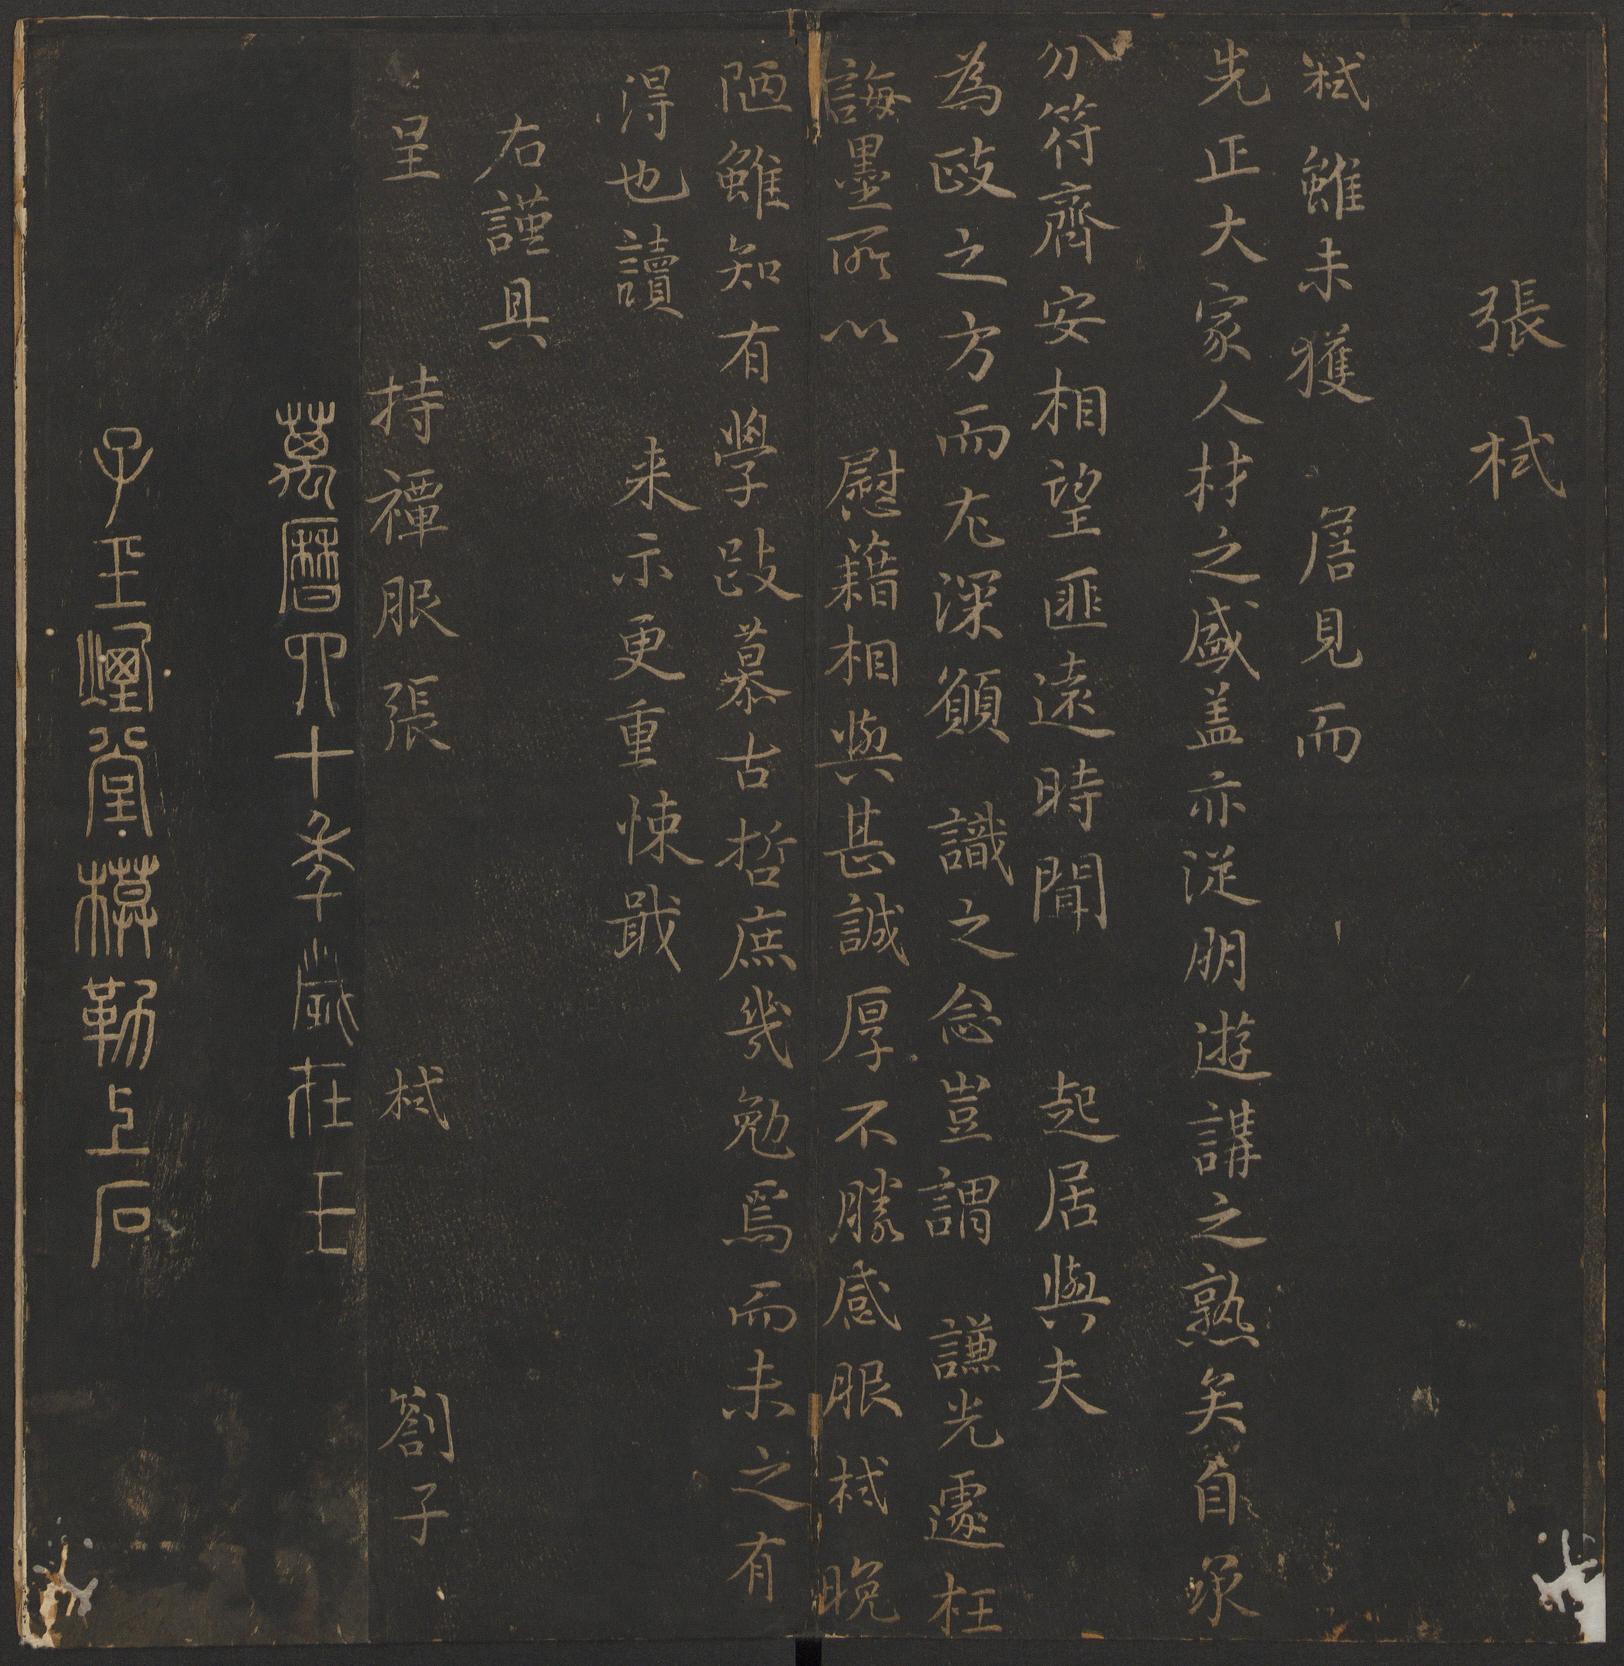 張栻
栻雖未獲 詹見而
先正大家人材之盛盖亦従朋遊講之熟矣自承
分符齊安相望匪遠時聞 起居與夫
為政之方而尤深願 識之念豈謂 謙光遽枉
誨墨所以 慰藉相與甚誠厚不勝感服栻晚
陋雖知有學跂慕古哲庶幾勉焉而未之有
得也讀 来示更重悚戢
右謹具
呈 持禫服張 栻 劄子
萬曆四十年歲在壬
子玉煙堂模勒上石